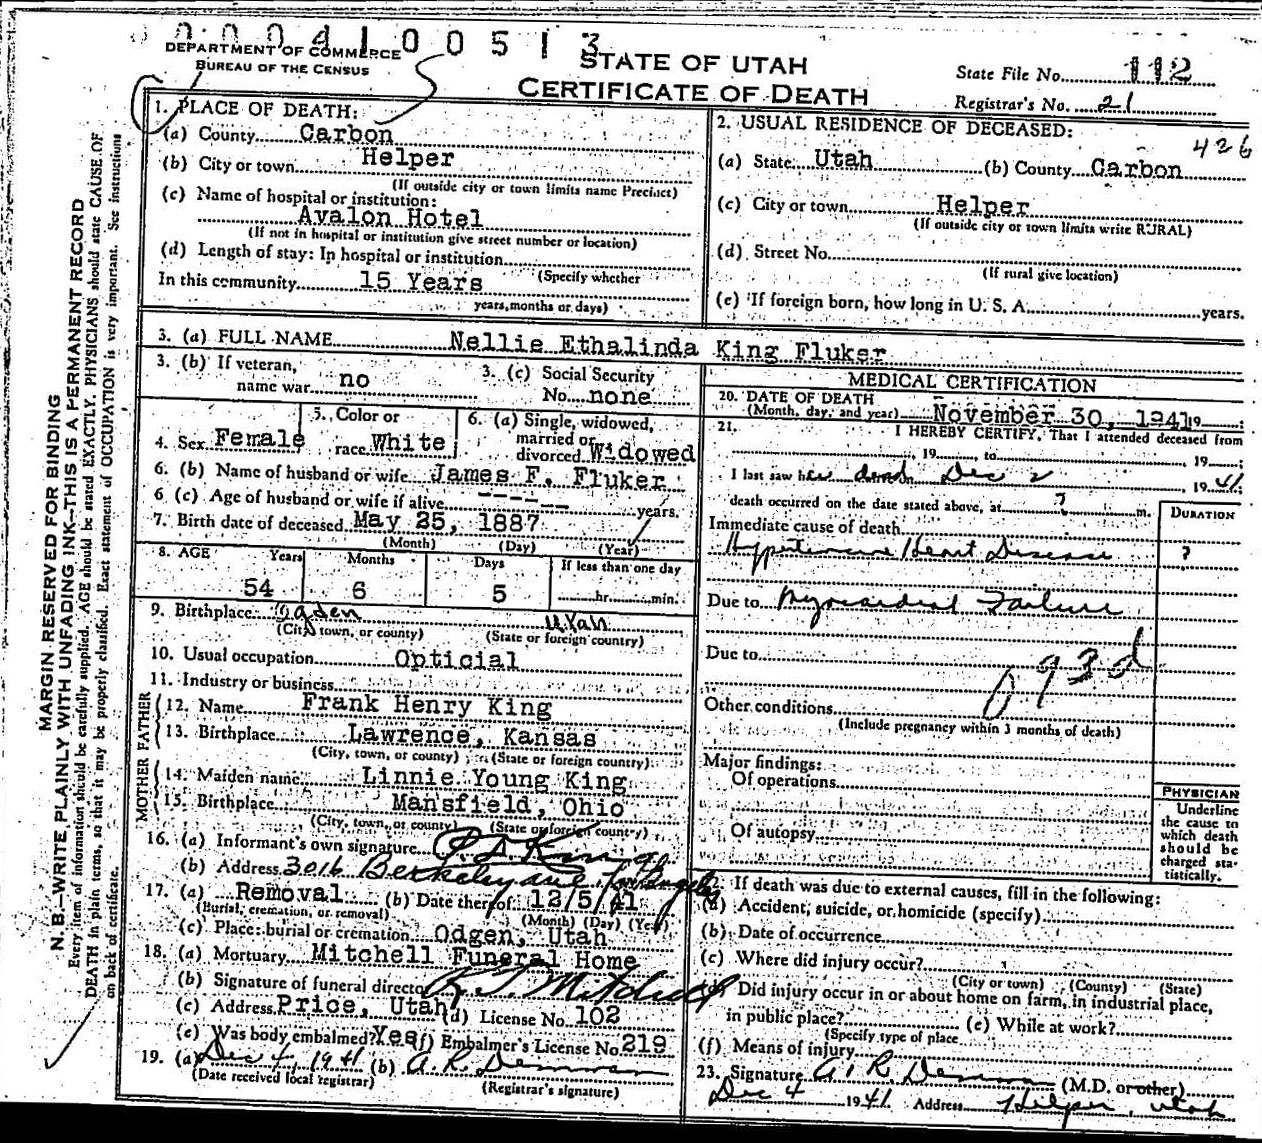 0004100513
DEPARTMENT OF COMMERCE
BUREAU OF THE CENSUS
STATE OF UTAH
CERTIFICATE OF DEATH
State File No. 112
Registrar's No. 21
MARGIN RESERVED FOR BINDING
N. B.—WRITE PLAINLY WITH UNFADING INK—THIS IS A PERMANENT RECORD
Every item of information should be carefully supplied. AGE should be stated EXACTLY. PHYSICIANS should state CAUSE OF
DEATH in plain terms, so that it may be properly classified. Exact statement of OCCUPATION is very important. See instructions
on back of certificate.
1. PLACE OF DEATH:
(a) County Carbon
(b) City or town Helper
(If outside city or town limits name Precinct)
(c) Name of hospital or institution:
Avalon Hotel
(If not in hospital or institution give street number or location)
(d) Length of stay: In hospital or institution
(Specify whether
In this community 15 Years
years, months or days)
2. USUAL RESIDENCE OF DECEASED:
426
(a) State Utah (b) County Carbon
(c) City or town Helper
(If outside city or town limits write RURAL)
(d) Street No.
(If rural give location)
(e) If foreign born, how long in U. S. A. years.
3. (a) FULL NAME Nellie Ethalinda King Fluker
3. (b) If veteran,
name war no
3. (c) Social Security
No. none
4. Sex Female
5. Color or
race White
6. (a) Single, widowed,
married or
divorced Widowed
6. (b) Name of husband or wife James F. Fluker
6 (c) Age of husband or wife if alive ---- -- years.
7. Birth date of deceased May 25, 1887
(Month) (Day) (Year)
8. AGE Years Months Days If less than one day
54 6 5 hr. min.
9. Birthplace Ogden Utah
(City, town, or county) (State or foreign country)
10. Usual occupation Opticial
11. Industry or business
FATHER
12. Name Frank Henry King
13. Birthplace Lawrence, Kansas
(City, town, or county) (State or foreign country)
MOTHER
14. Maiden name Linnie Young King
15. Birthplace Mansfield, Ohio
(City, town, or county) (State or foreign country)
16. (a) Informant's own signature King
(b) Address 3016 Berkeley ave Los Angeles
17. (a) Removal (b) Date thereof 12/5/41
(Burial, cremation, or removal) (Month) (Day) (Year)
(c) Place: burial or cremation Odgen, Utah
18. (a) Mortuary Mitchell Funeral Home
(b) Signature of funeral director Mitchell
(c) Address Price, Utah (d) License No. 102
(e) Was body embalmed? Yes (f) Embalmer's License No. 219
19. (a) Dec 4, 1941 (b) A. R. Demman
(Date received local registrar) (Registrar's signature)
MEDICAL CERTIFICATION
20. DATE OF DEATH
(Month, day, and year) November 30, 1941 19 ;
21. I HEREBY CERTIFY, That I attended deceased from
, 19 , to , 19 ;
I last saw her dead Dec 2 19 41;
death occurred on the date stated above, at ? m.
DURATION
Immediate cause of death
Hypertensive Heart Disease ?
Due to Myocardial Failure
Due to
093d
Other conditions
(Include pregnancy within 3 months of death)
Major findings:
Of operations
Of autopsy
PHYSICIAN
Underline
the cause to
which death
should be
charged sta-
tistically.
22. If death was due to external causes, fill in the following:
(a) Accident, suicide, or homicide (specify)
(b) Date of occurrence
(c) Where did injury occur?
(City or town) (County) (State)
(d) Did injury occur in or about home on farm, in industrial place,
in public place? (e) While at work?
(Specify type of place
(f) Means of injury
23. Signature A. R. Demman (M.D. or other)
Dec 4 1941 Address Helper, Utah